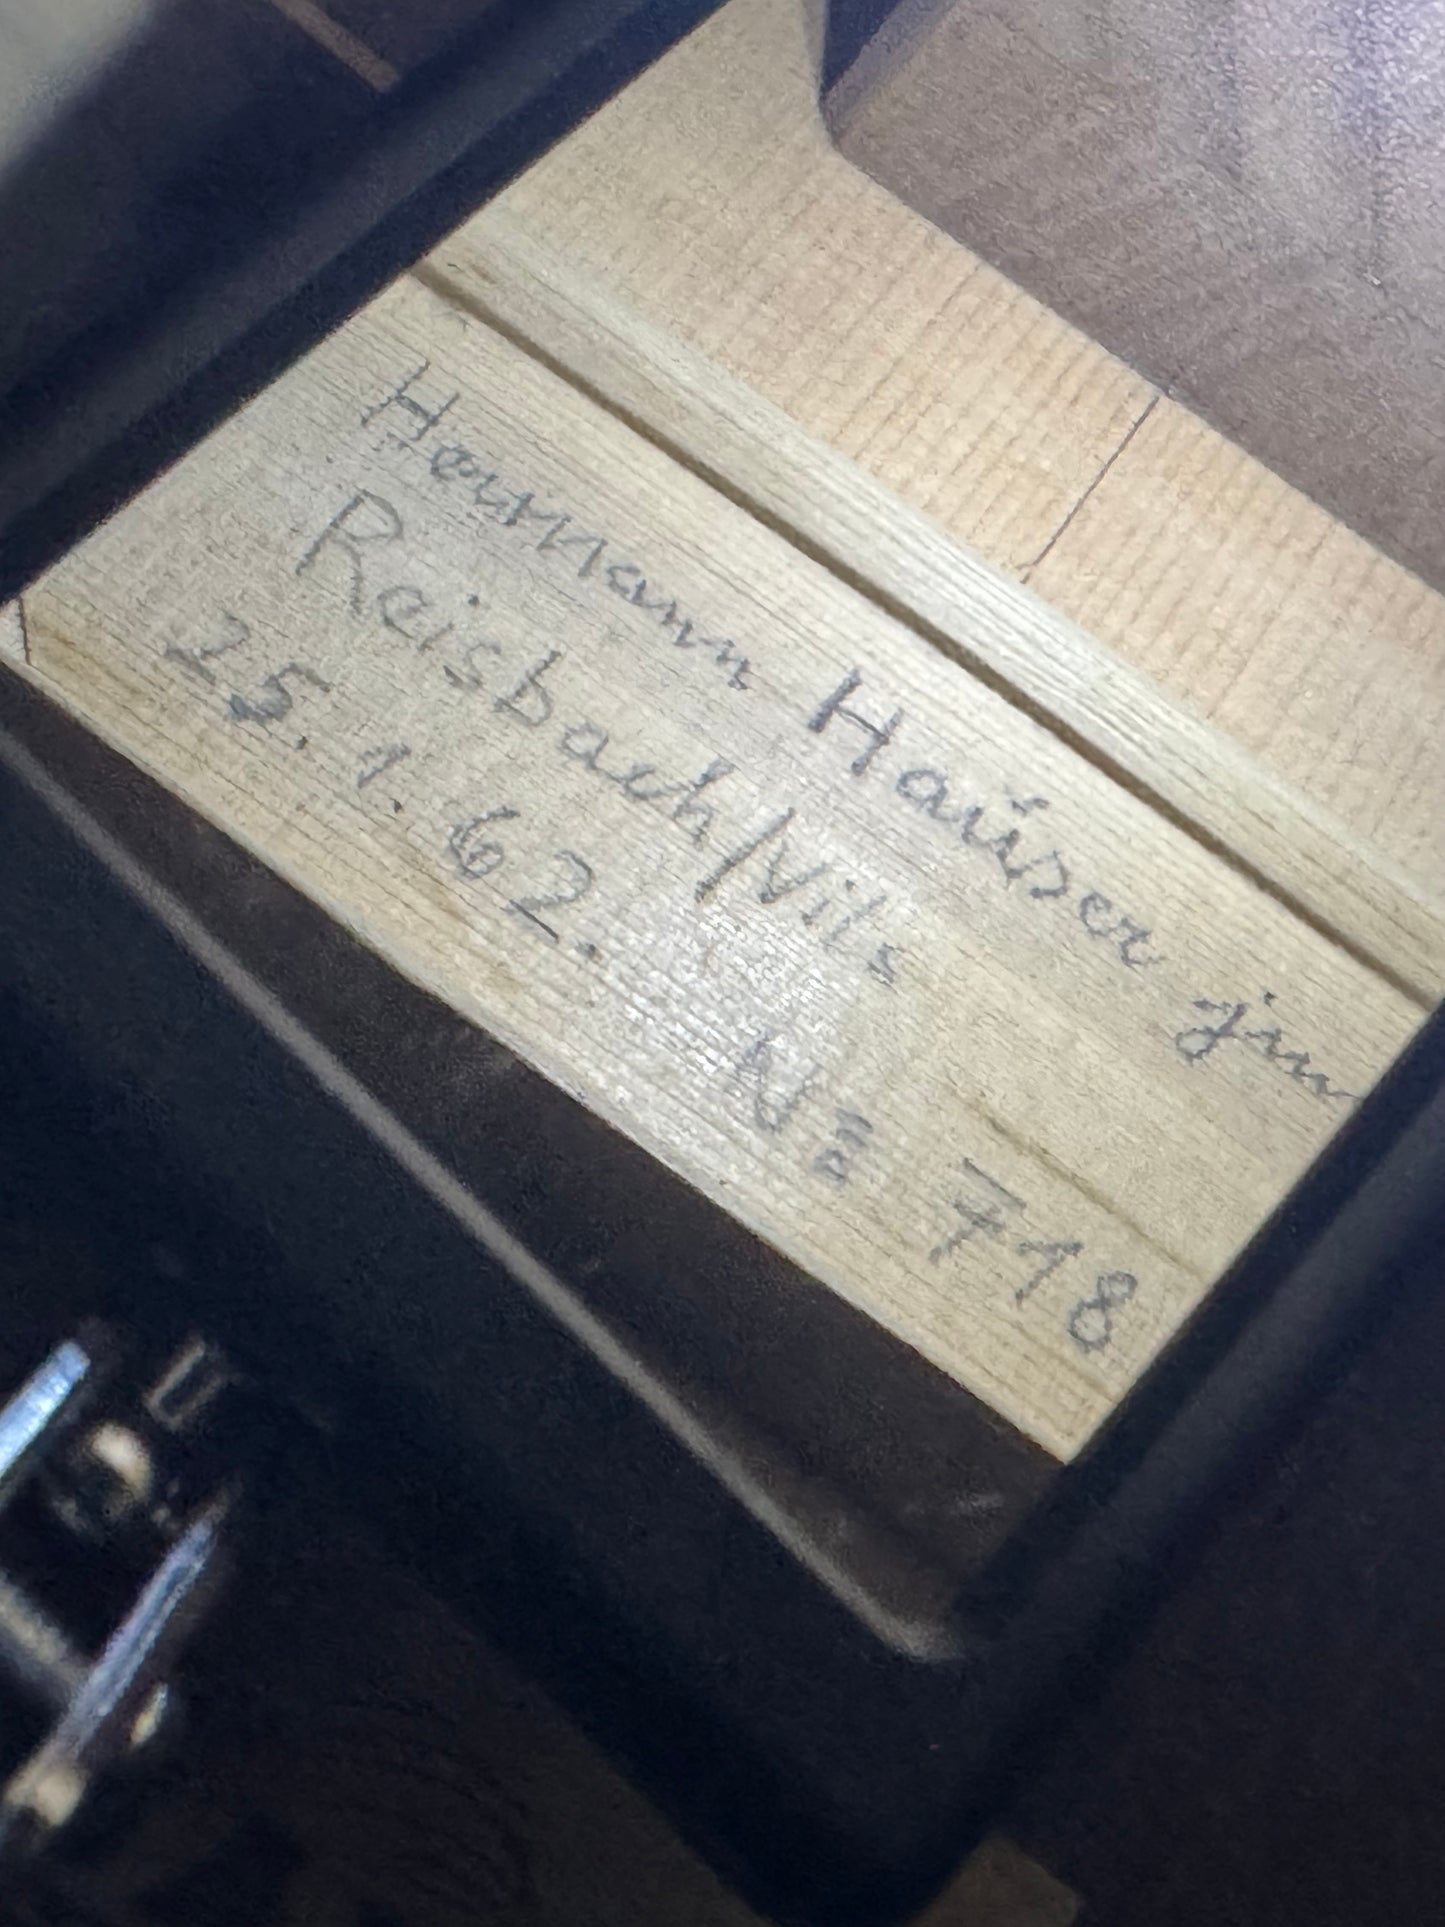 Hermann Hauser jun
Reisbach/Vils
25.1.62.
No 718